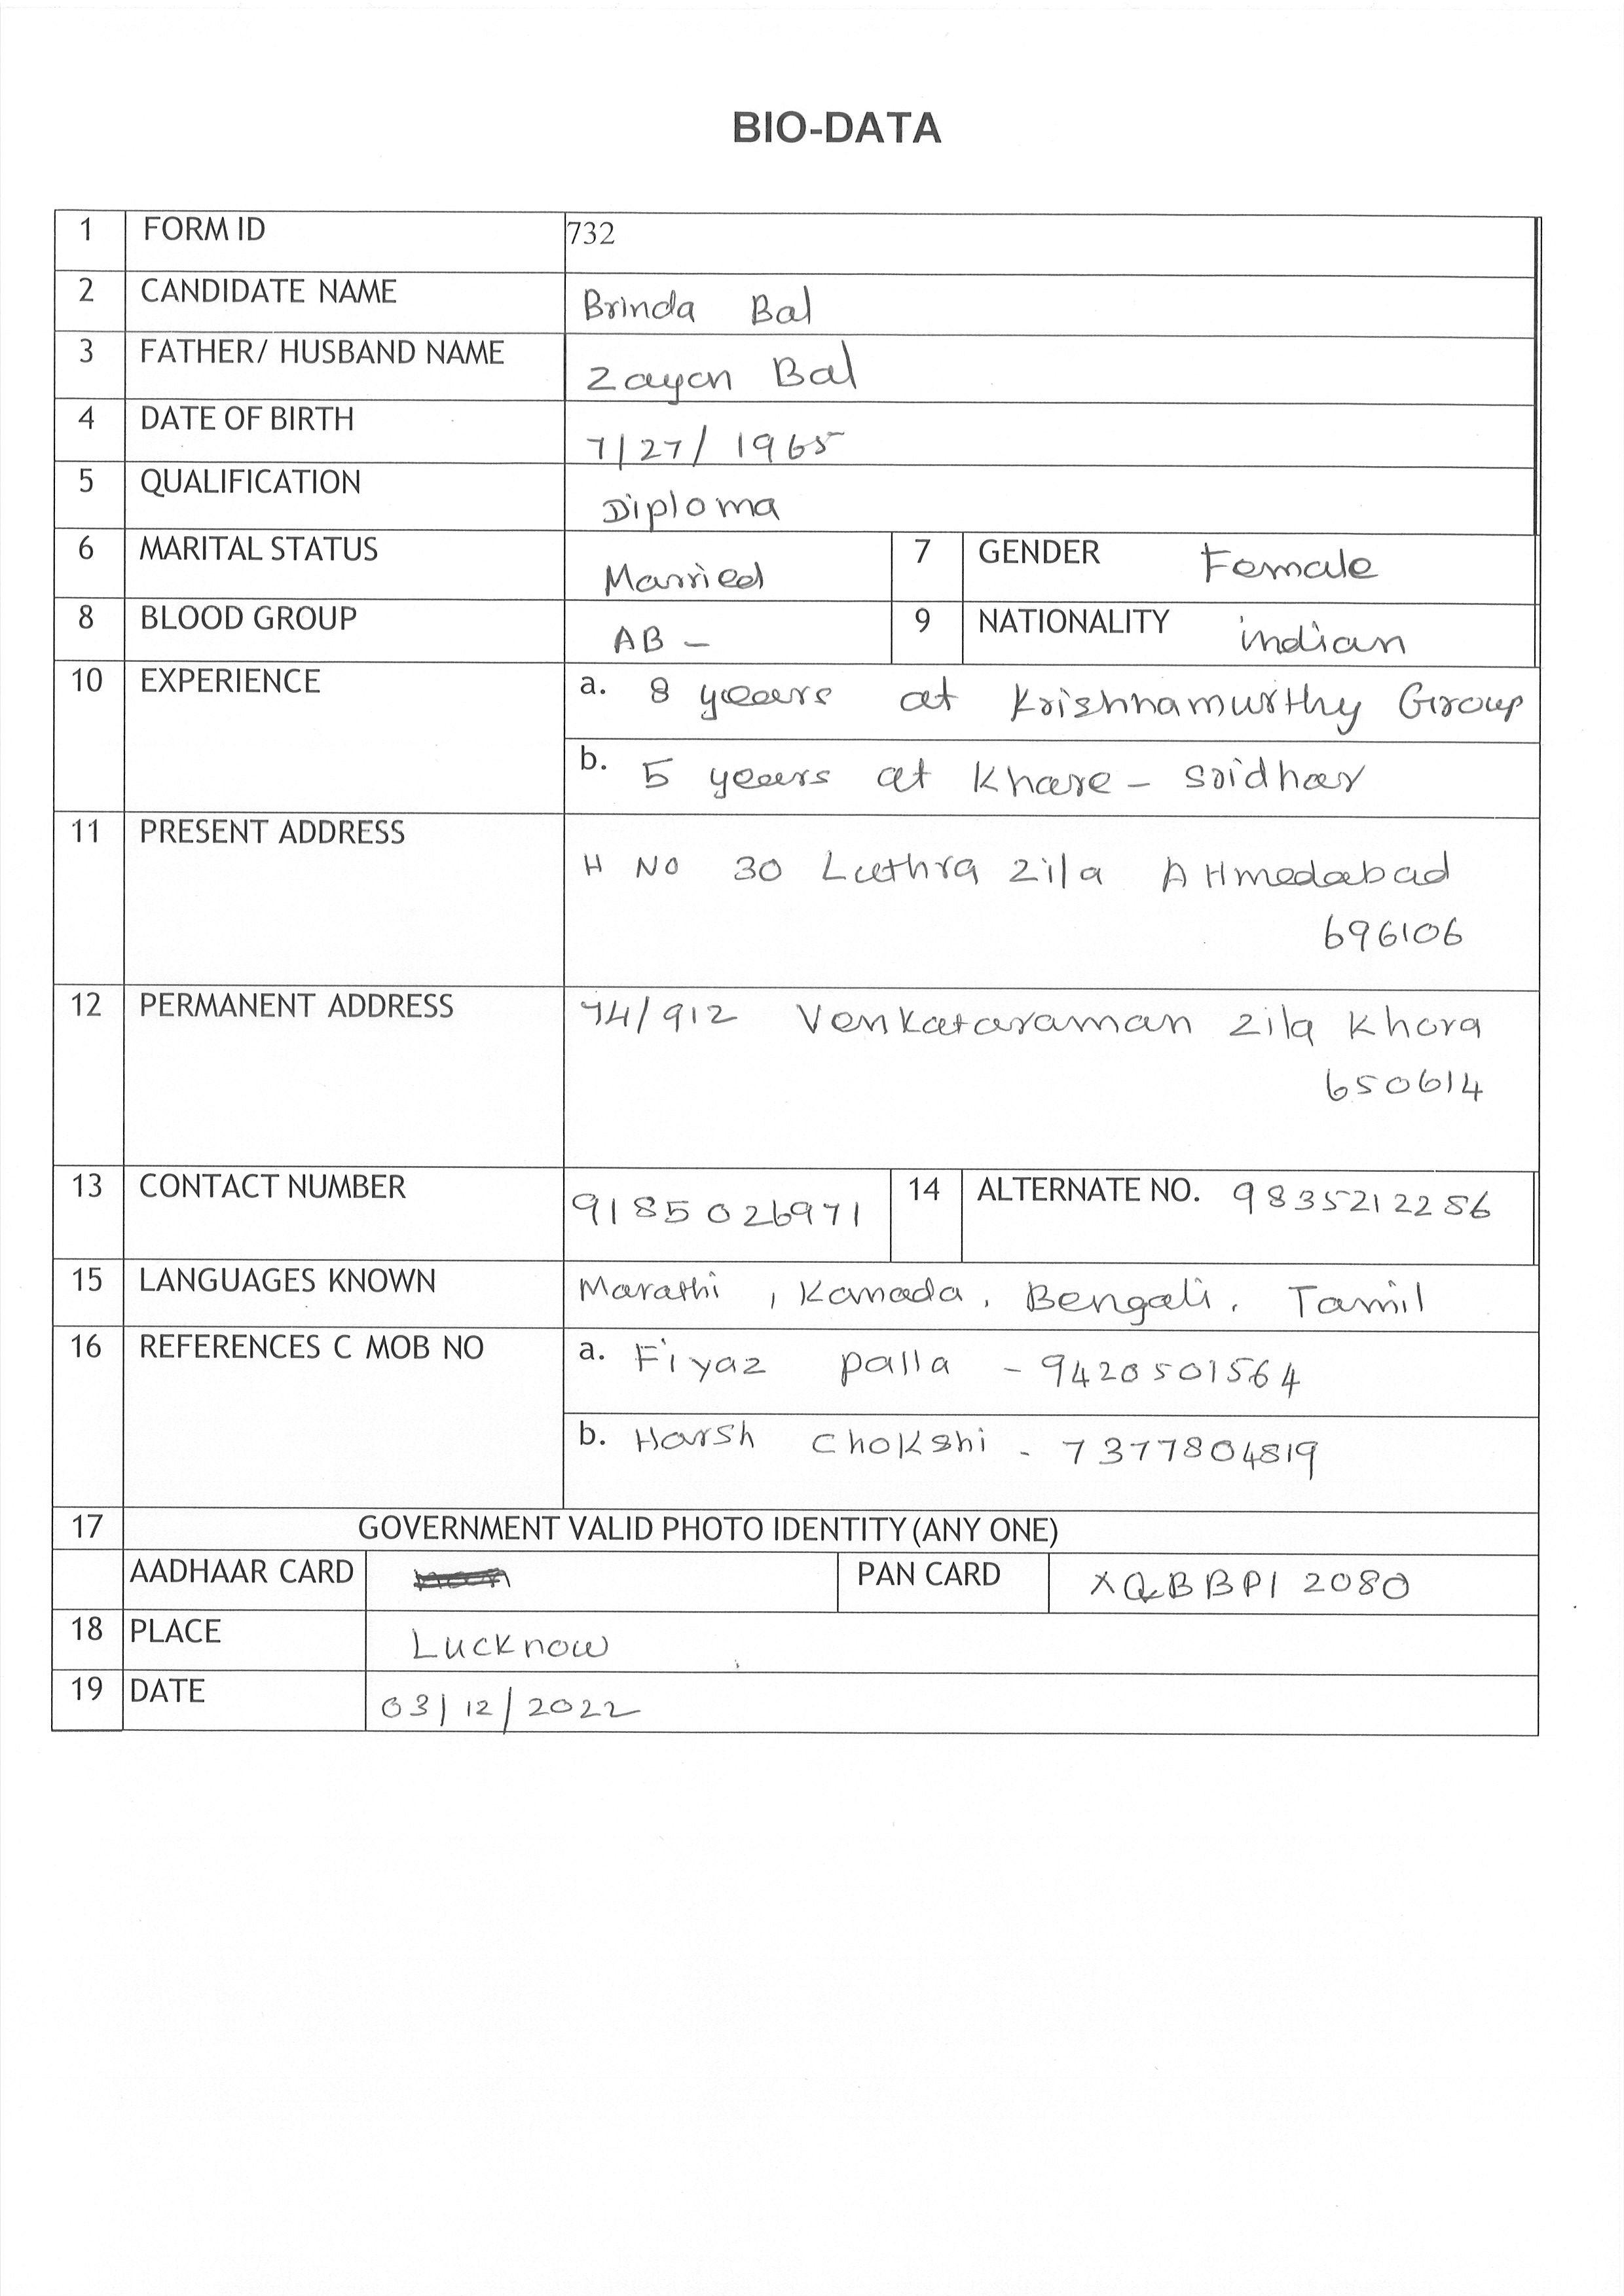 BIO-DATA
1 FORM ID 732
2 CANDIDATE NAME Brinda Bal
3 FATHER/ HUSBAND NAME Zayan Bal
4 DATE OF BIRTH 7/27/1965
5 QUALIFICATION Diploma
6 MARITAL STATUS Married 7 GENDER Female
8 BLOOD GROUP AB - 9 NATIONALITY indian
10 EXPERIENCE a. 8 years at Krishnamurthy Group
b. 5 years at Khare - Sridhar
11 PRESENT ADDRESS H NO 30 Luthra Zila AHmedabad
696106
12 PERMANENT ADDRESS 74/912 Venkataraman Zila Khora
650614
13 CONTACT NUMBER 9185026971 14 ALTERNATE NO. 9835212286
15 LANGUAGES KNOWN Marathi , Kannada , Bengali , Tamil
16 REFERENCES C MOB NO a. Fiyaz palla - 9420501564
b. Harsh Chokshi - 7377804819
17 GOVERNMENT VALID PHOTO IDENTITY (ANY ONE)
AADHAAR CARD PAN CARD XQBBPI 2080
18 PLACE Lucknow
19 DATE 03/12/2022